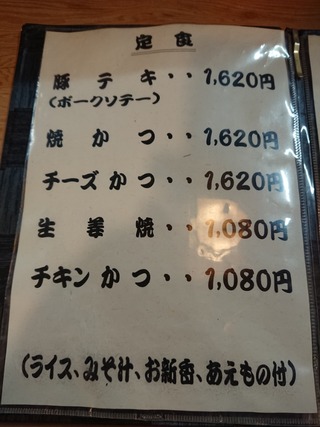 定食
豚テキ・・1,620円
(ポークソテー)
焼かつ・・1,620円
チーズかつ・・1,620円
生姜焼・・1,080円
チキンかつ・・1,080円
(ライス、みそ汁、お新香、あえもの付)